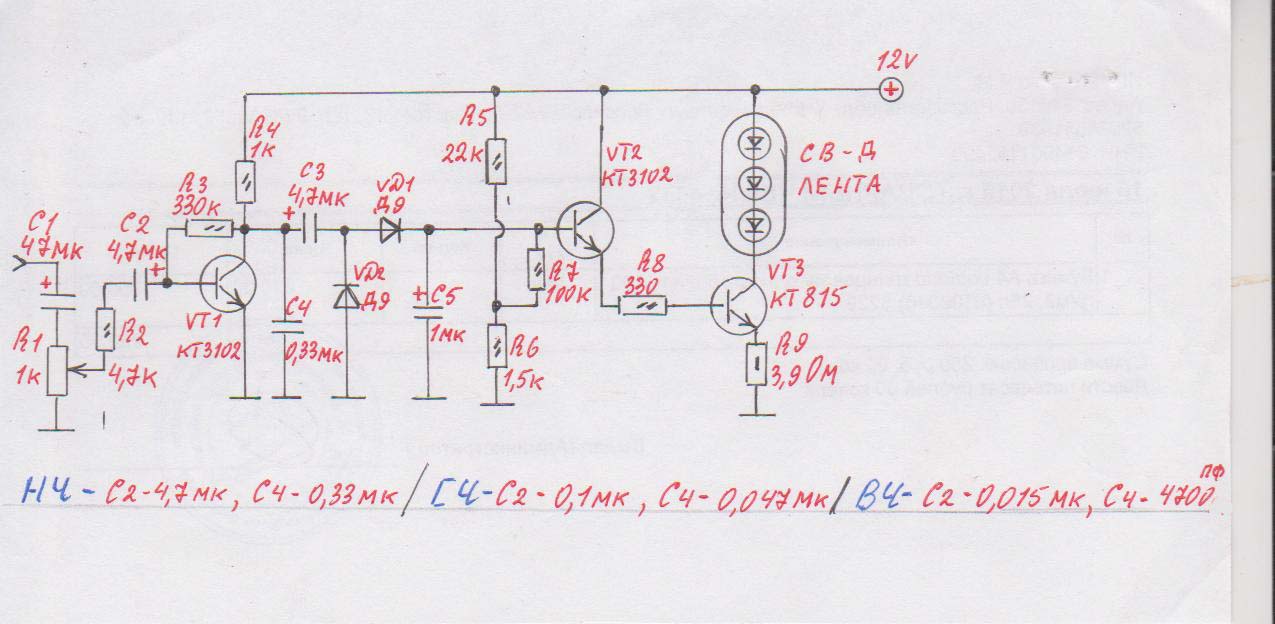 12v
+
R4
1к
R5
22к
VT2
КТ3102
СВ-Д
ЛЕНТА
R3
330к
C3
4,7мк
+
VD1
Д9
C1
47мк
+
C2
4,7мк
+
VT1
КТ3102
R1
1к
R2
4,7к
C4
0,33мк
VD2
Д9
+
C5
1мк
R7
100к
R6
1,5к
R8
330
VT3
КТ815
R9
3,9Ом
НЧ - С2-4,7мк, С4-0,33мк / СЧ-С2-0,1мк, С4-0,047мк / ВЧ-С2-0,015мк, С4-4700 пФ